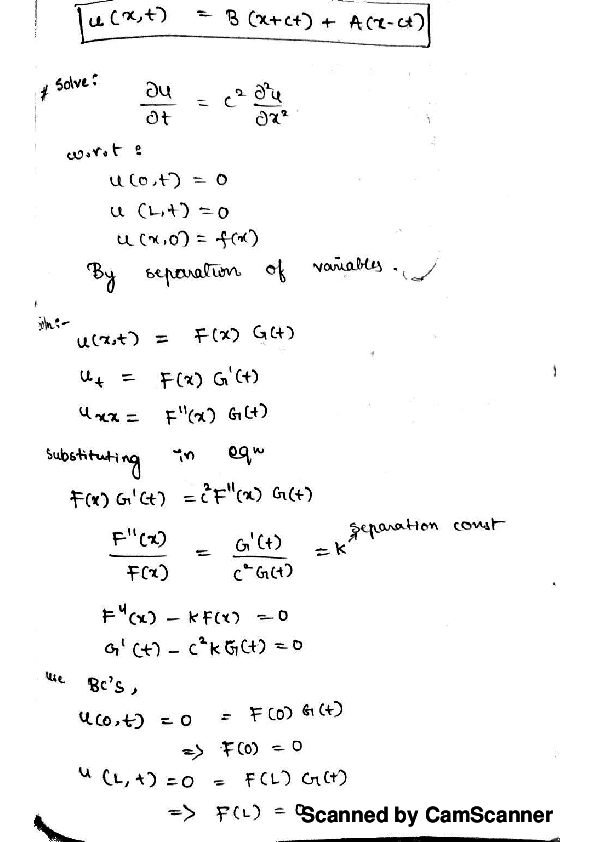 u(x,t) = B(x+ct) + A(x-ct)
* Solve: ∂u/∂t = c² ∂²u/∂x²
w.r.t :
u(0,t) = 0
u(L,t) = 0
u(x,0) = f(x)
By separation of variables.
soln:-
u(x,t) = F(x) G(t)
u_t = F(x) G'(t)
u_xx = F''(x) G(t)
Substituting in eqn
F(x) G'(t) = c² F''(x) G(t)
F''(x)/F(x) = G'(t)/c² G(t) = k separation const
F''(x) - kF(x) = 0
G'(t) - c²k G(t) = 0
use BC's,
u(0,t) = 0 = F(0) G(t)
=> F(0) = 0
u(L,t) = 0 = F(L) G(t)
=> F(L) = 0
Scanned by CamScanner